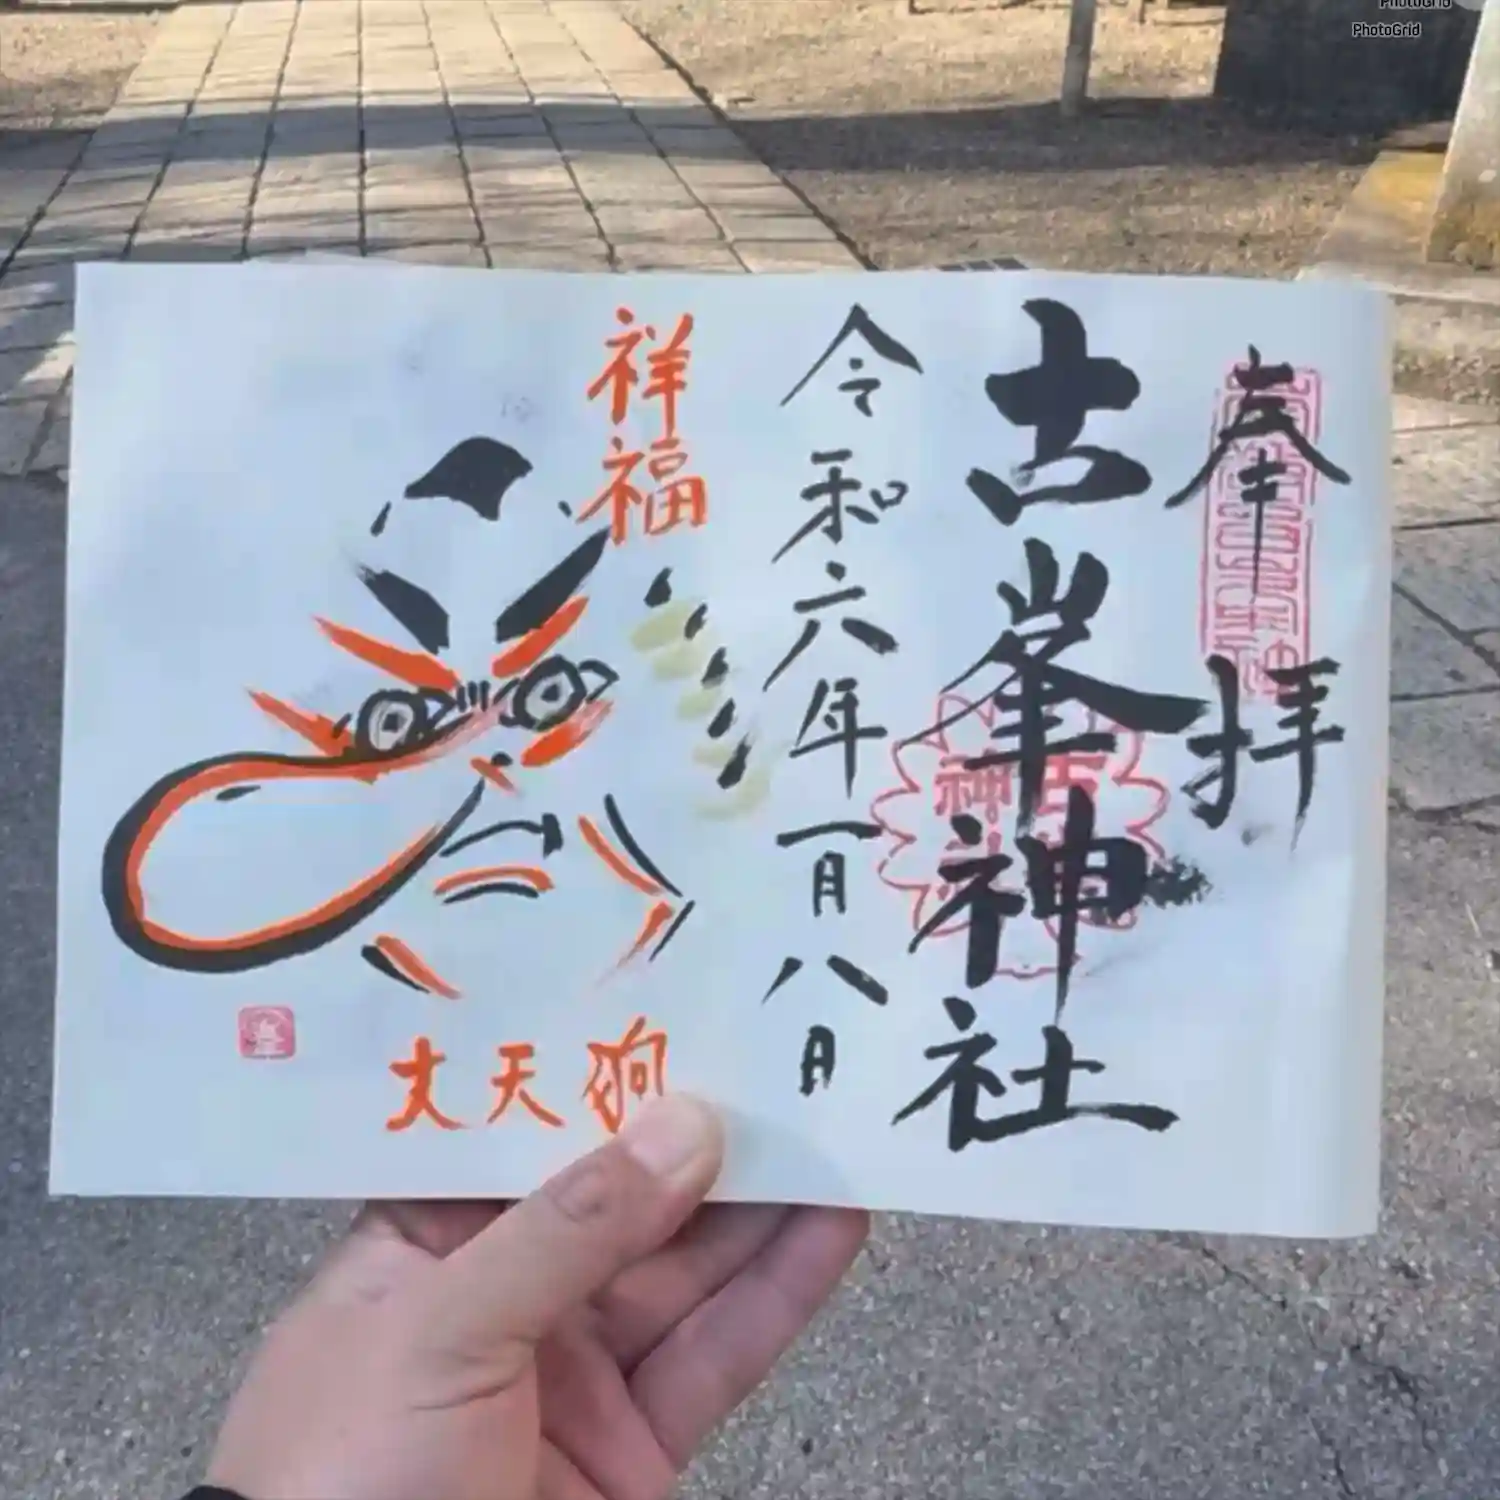 奉拝
古峯神社
令和六年一月八日
祥福
大天狗
PhotoGrid
PhotoGrid